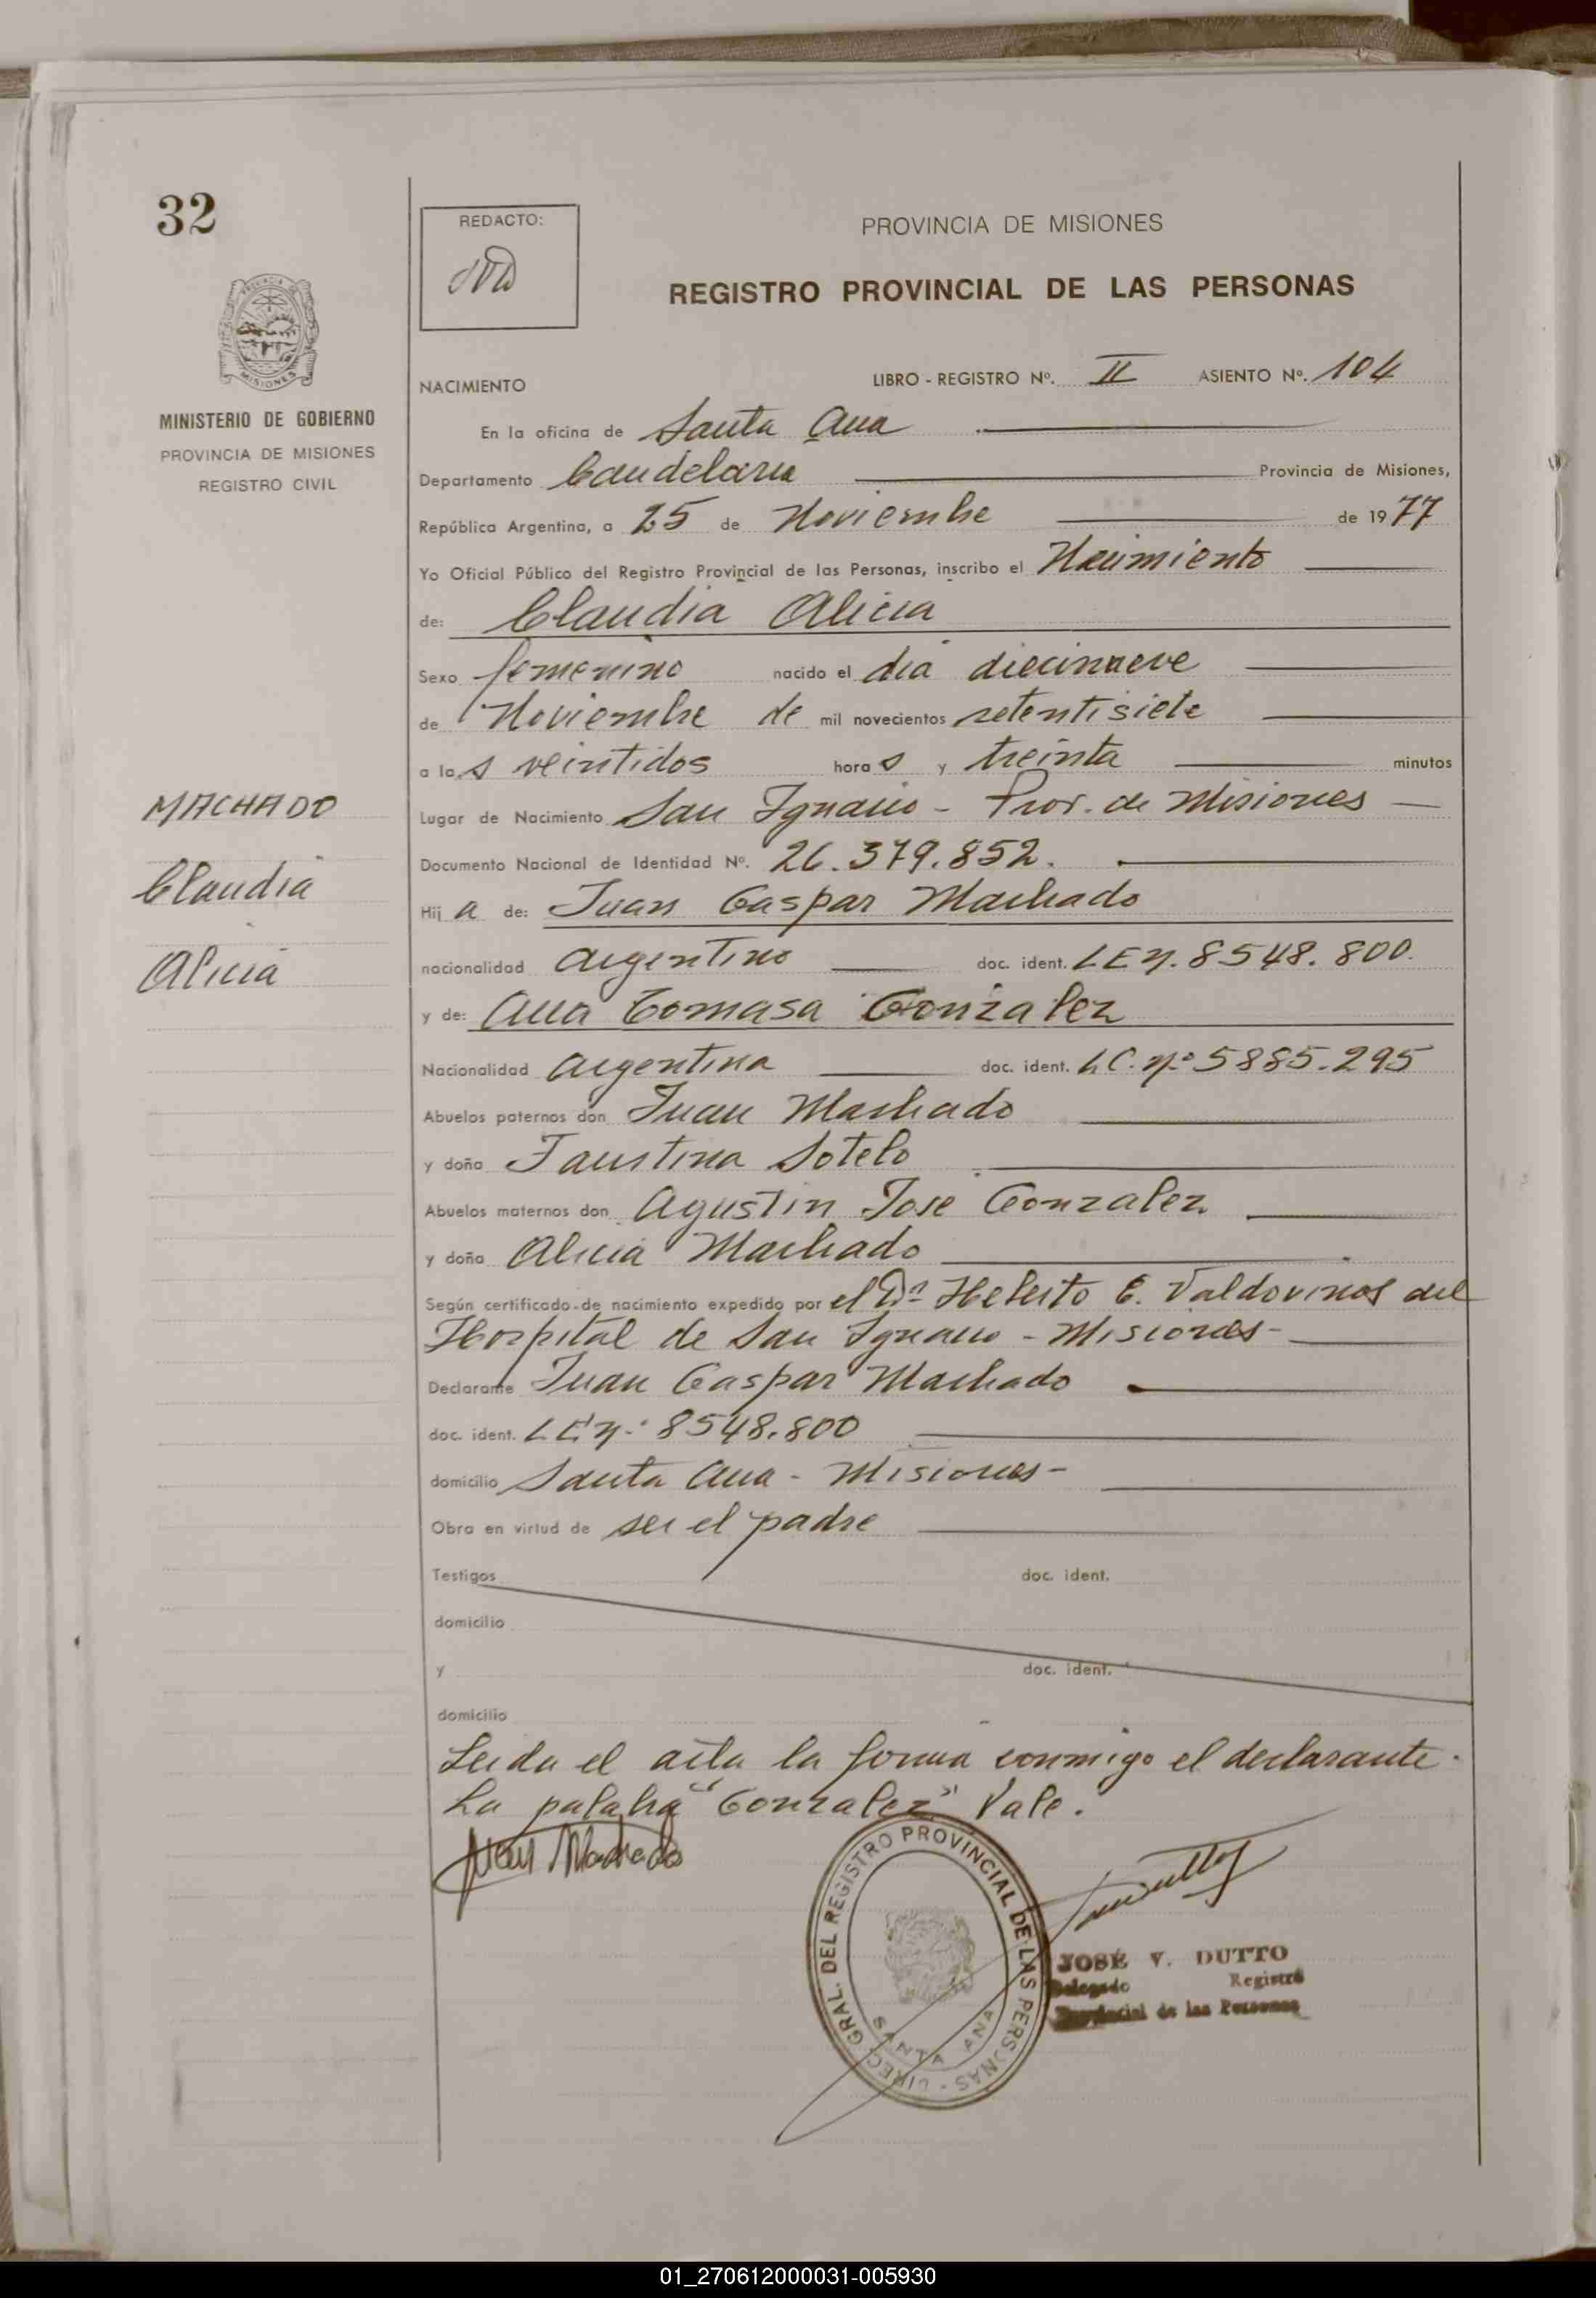 32
REDACTO:
PROVINCIA DE MISIONES
REGISTRO PROVINCIAL DE LAS PERSONAS
MISIONES
MINISTERIO DE GOBIERNO
PROVINCIA DE MISIONES
REGISTRO CIVIL
NACIMIENTO LIBRO - REGISTRO Nº. II ASIENTO Nº. 104
En la oficina de Santa Ana
Departamento Candelaria Provincia de Misiones,
República Argentina, a 25 de Noviembre de 1977
Yo Oficial Público del Registro Provincial de las Personas, inscribo el Nacimiento
de: Claudia Alicia
Sexo femenino nacido el día diecinueve
de Noviembre de mil novecientos setentisiete
a las veintidos horas y treinta minutos
Lugar de Nacimiento San Ignacio - Prov. de Misiones
Documento Nacional de Identidad Nº. 26.379.852.
Hija de: Juan Gaspar Machado
nacionalidad Argentino doc. ident. LEn. 8548.800.
y de: Ana Tomasa Gonzalez
Nacionalidad Argentina doc. ident. LC.nº 5885.295
Abuelos paternos don Juan Machado
y doña Faustina Sotelo
Abuelos maternos don Agustin Jose Gonzalez
y doña Alicia Machado
Según certificado de nacimiento expedido por el Dr. Heberto E. Valdovinos del
Hospital de San Ignacio - Misiones -
Declarante Juan Gaspar Machado
doc. ident. LEn. 8548.800
domicilio Santa Ana - Misiones -
Obra en virtud de ser el padre
Testigos doc. ident.
domicilio
y doc. ident.
domicilio
Leida el acta la firma conmigo el declarante.
La palabra "Gonzalez" Vale.
Juan Machado
MACHADO
Claudia
Alicia
DIREC. GRAL. DEL REGISTRO PROVINCIAL DE LAS PERSONAS -
SANTA ANA
JOSÉ V. DUTTO
Delegado Registro
Provincial de las Personas
01_270612000031-005930